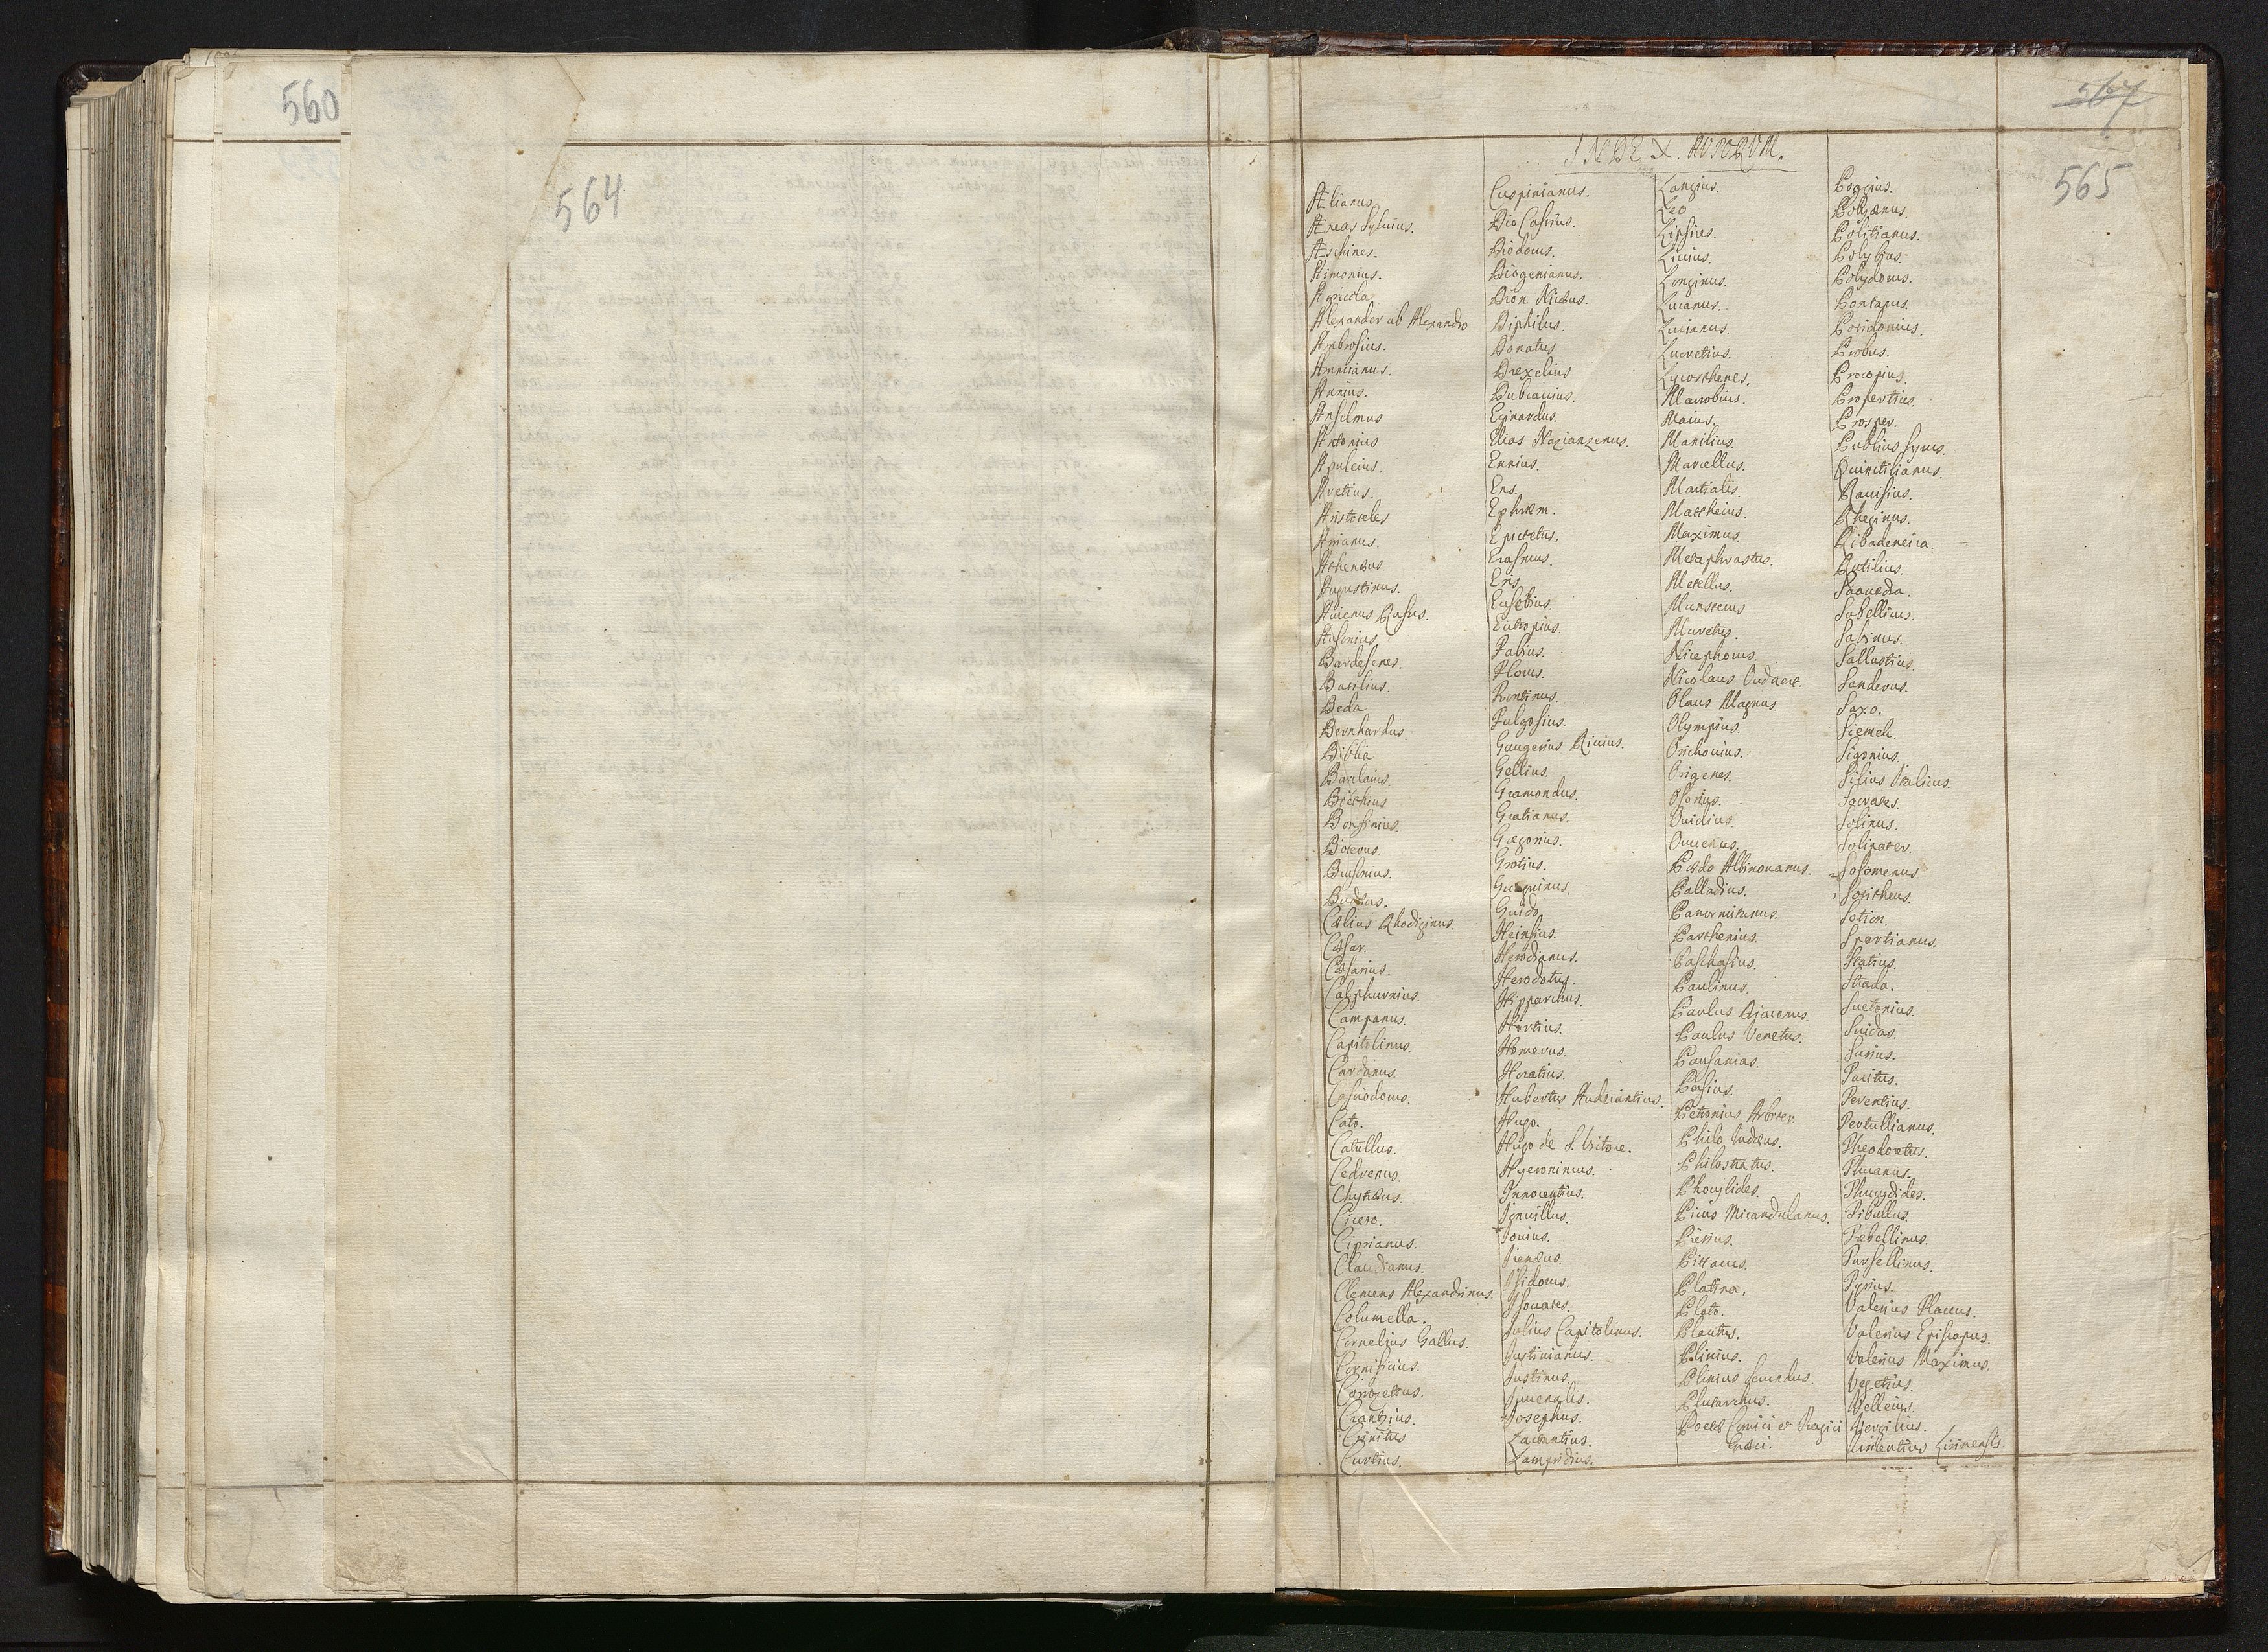 560
564
567
565
INDEX AUTORUM.
Ælianus
Æneas Sylvius.
Æschines.
Aimonius.
Agricola
Alexander ab Alexandro
Ambrosius.
Ammianus.
Annius.
Anselmus
Antonius
Apuleius.
Aretius.
Aristoteles
Arrianus.
Athenæus.
Augustinus.
Auienus Rufus.
Ausonius.
Bardesenes.
Basilius.
Beda
Bernhardus.
Biblia
Barclaius.
Böethius
Bonfinius.
Boterus.
Budæus.
Cælius Rhodiginus.
Cæsar.
Cæsarius.
Calphurnius.
Campanus.
Capitolinus.
Cardanus.
Cassiodorus.
Cato.
Catullus.
Cedrenus.
Chytræus.
Cicero.
Ciprianus.
Claudianus.
Clemens Alexandrinus.
Columella.
Cornelius Gallus.
Cornificius.
Crantzius.
Crinitus
Curtius.
Cuspinianus.
Dio Cassius.
Diodorus.
Diogenianus.
Dion Nicæus.
Diphilus.
Donatus
Drexelius
Dubravius.
Eginardus.
Elias Nazianzenus.
Ennius.
Ens
Ephræm.
Epictetus.
Erasmus.
Eusebius.
Eutropius.
Fabius.
Florus.
Frontinus.
Fulgosius.
Gaugerius Riuius.
Gellius.
Gramondus.
Gratianus.
Gregorius.
Grotius.
Guido
Heinsius.
Herodianus.
Herodotus.
Hipparchus.
Hirtius.
Homerus.
Horatius.
Hugo.
Hugo de S. Victore.
Hyeronimus.
Innocentius.
Jouius.
Irenæus.
Isidorus.
Isocrates.
Julius Capitolinus.
Justinianus.
Justinus
Juuenalis.
Josephus.
Lactantius.
Lampridius.
Langius.
Leo
Lipsius.
Liuius.
Longinus.
Lucanus.
Lucianus.
Lucretius.
Lycosthenes.
Macrobius.
Maius.
Manilius.
Marcellus.
Martialis.
Mattheius.
Maximus.
Metaphrastus.
Metellus.
Munsterus
Muretus.
Nicephorus.
Nicolaus Oudaert.
Olaus Magnus.
Olympius.
Orichouius.
Origenes.
Osorius.
Ouidius
Ouuenus.
Pædo Albinouanus.
Palladius.
Panormitanus.
Parthenius.
Paschasius.
Paulinus.
Paulus Diaconus.
Paulus Venetus.
Pausanias.
Persius.
Petronius Arbiter
Philo Iudæus.
Philostratus.
Phocylides.
Picus Mirandulanus.
Pierius.
Pittacus.
Platina.
Plato.
Plautus.
Plinius.
Plinius secundus.
Plutarchus.
Poetæ Comici et Tragici
Græci.
Poggius.
Polyænus.
Politianus.
Polybius.
Polydorus.
Pontanus.
Posidonius.
Probus.
Procopius.
Propertius.
Prosper.
Publius Syrus.
Quinctilianus.
Rauisius.
Rheginus.
Ribadeneira.
Rutilius.
Saauedra.
Sabellicus.
Sabinus.
Sallustius.
Sanderus.
Saxo.
Siemek.
Sigonius.
Silius Italicus.
Socrates.
Solinus.
Solipater.
Sosomenus
Sositheus.
Sotion.
Spartianus.
Statius.
Strada.
Suetonius.
Suidas.
Surius.
Tacitus.
Terentius.
Tertullianus.
Theodoretus.
Thuanus.
Thucydides.
Tibullus.
Trebellius.
Tursellinus.
Tyrius.
Valerius Flaccus.
Valerius Episcopus.
Valerius Maximus.
Vegetius.
Velleius.
Vergilius.
Vincentius Lirinensis.